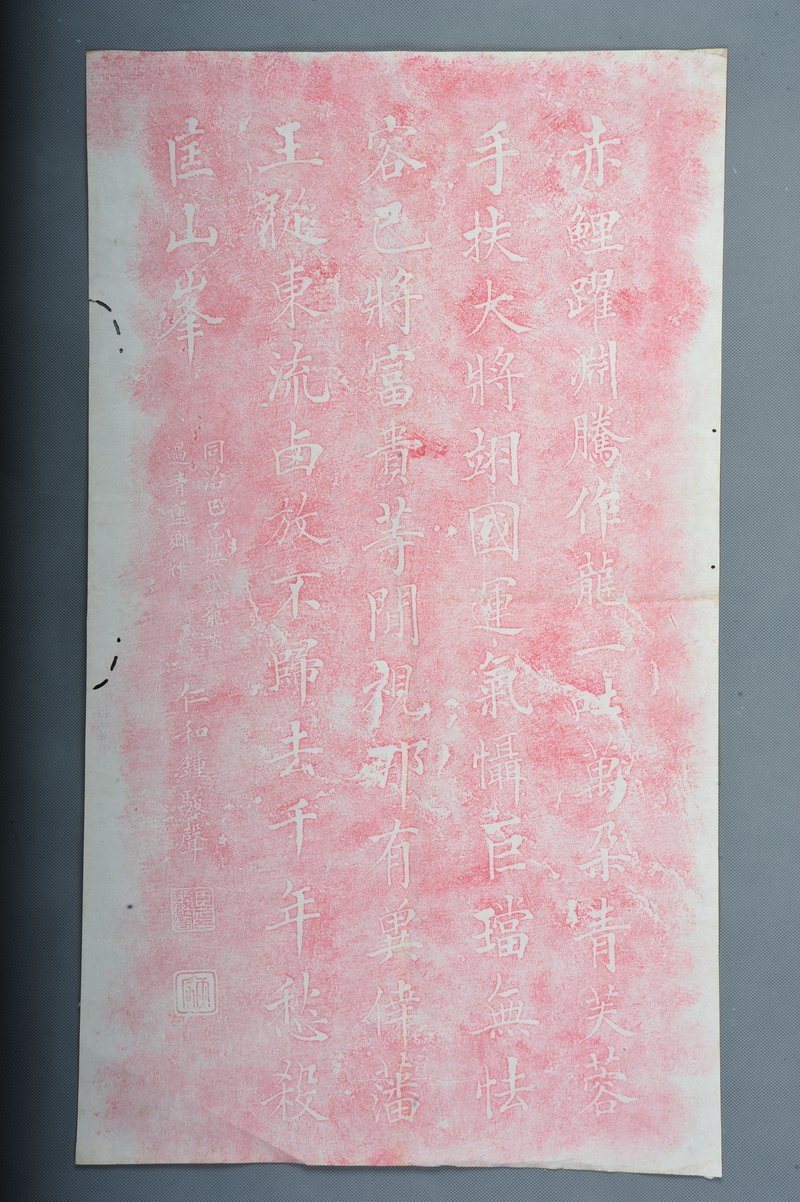 赤鯉躍淵騰作龍一吐萬朵青芙蓉
手扶大將翊國運氣懾巨璫無怯
容已將富貴等閒視那有冀倖藩
王從東流卤放不歸去千年愁殺
匡山峯
同治己巳按試龍安
過青蓮鄉作
仁和鍾駿聲